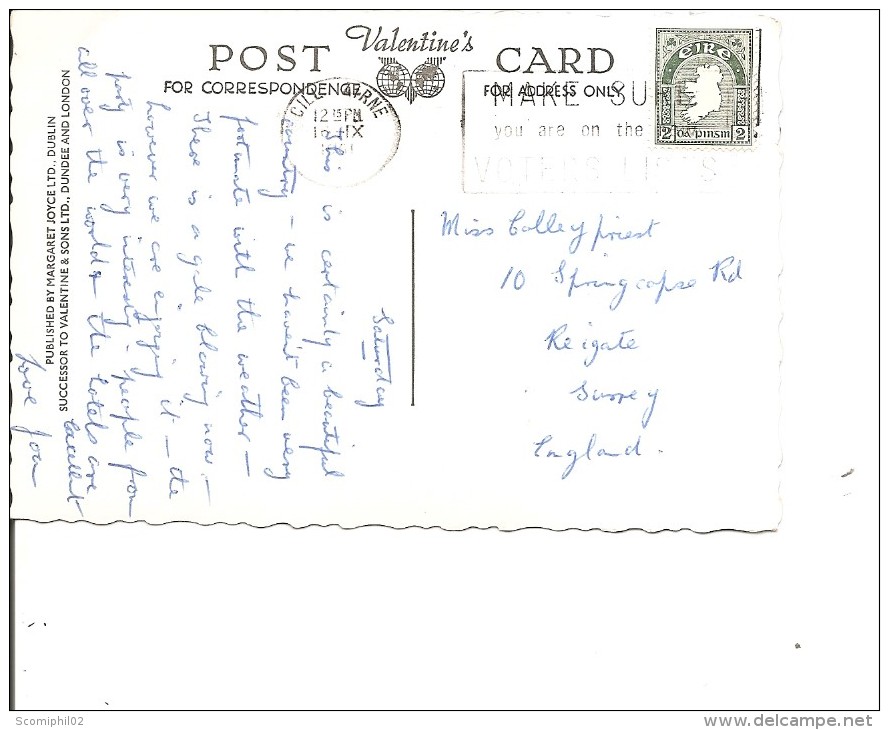 POST Valentine's CARD
FOR CORRESPONDENCE
FOR ADDRESS ONLY
CILL AIRNE
12 15 PM
IX
MAKE SURE
you are on the
VOTERS LISTS
éire
2 2
PUBLISHED BY MARGARET JOYCE LTD., DUBLIN
SUCCESSOR TO VALENTINE & SONS LTD., DUNDEE AND LONDON
Saturday
This is certainly a beautiful
country - we haven't been very
fortunate with the weather -
There is a gale blowing now -
however we are enjoying it - the
party is very interesting people from
all over the world & the hotels are
excellent
Love Jon
Miss Colleypriest
10 Springcopse Rd
Reigate
Surrey
England.
Scomiphil02
www.delcampe.net